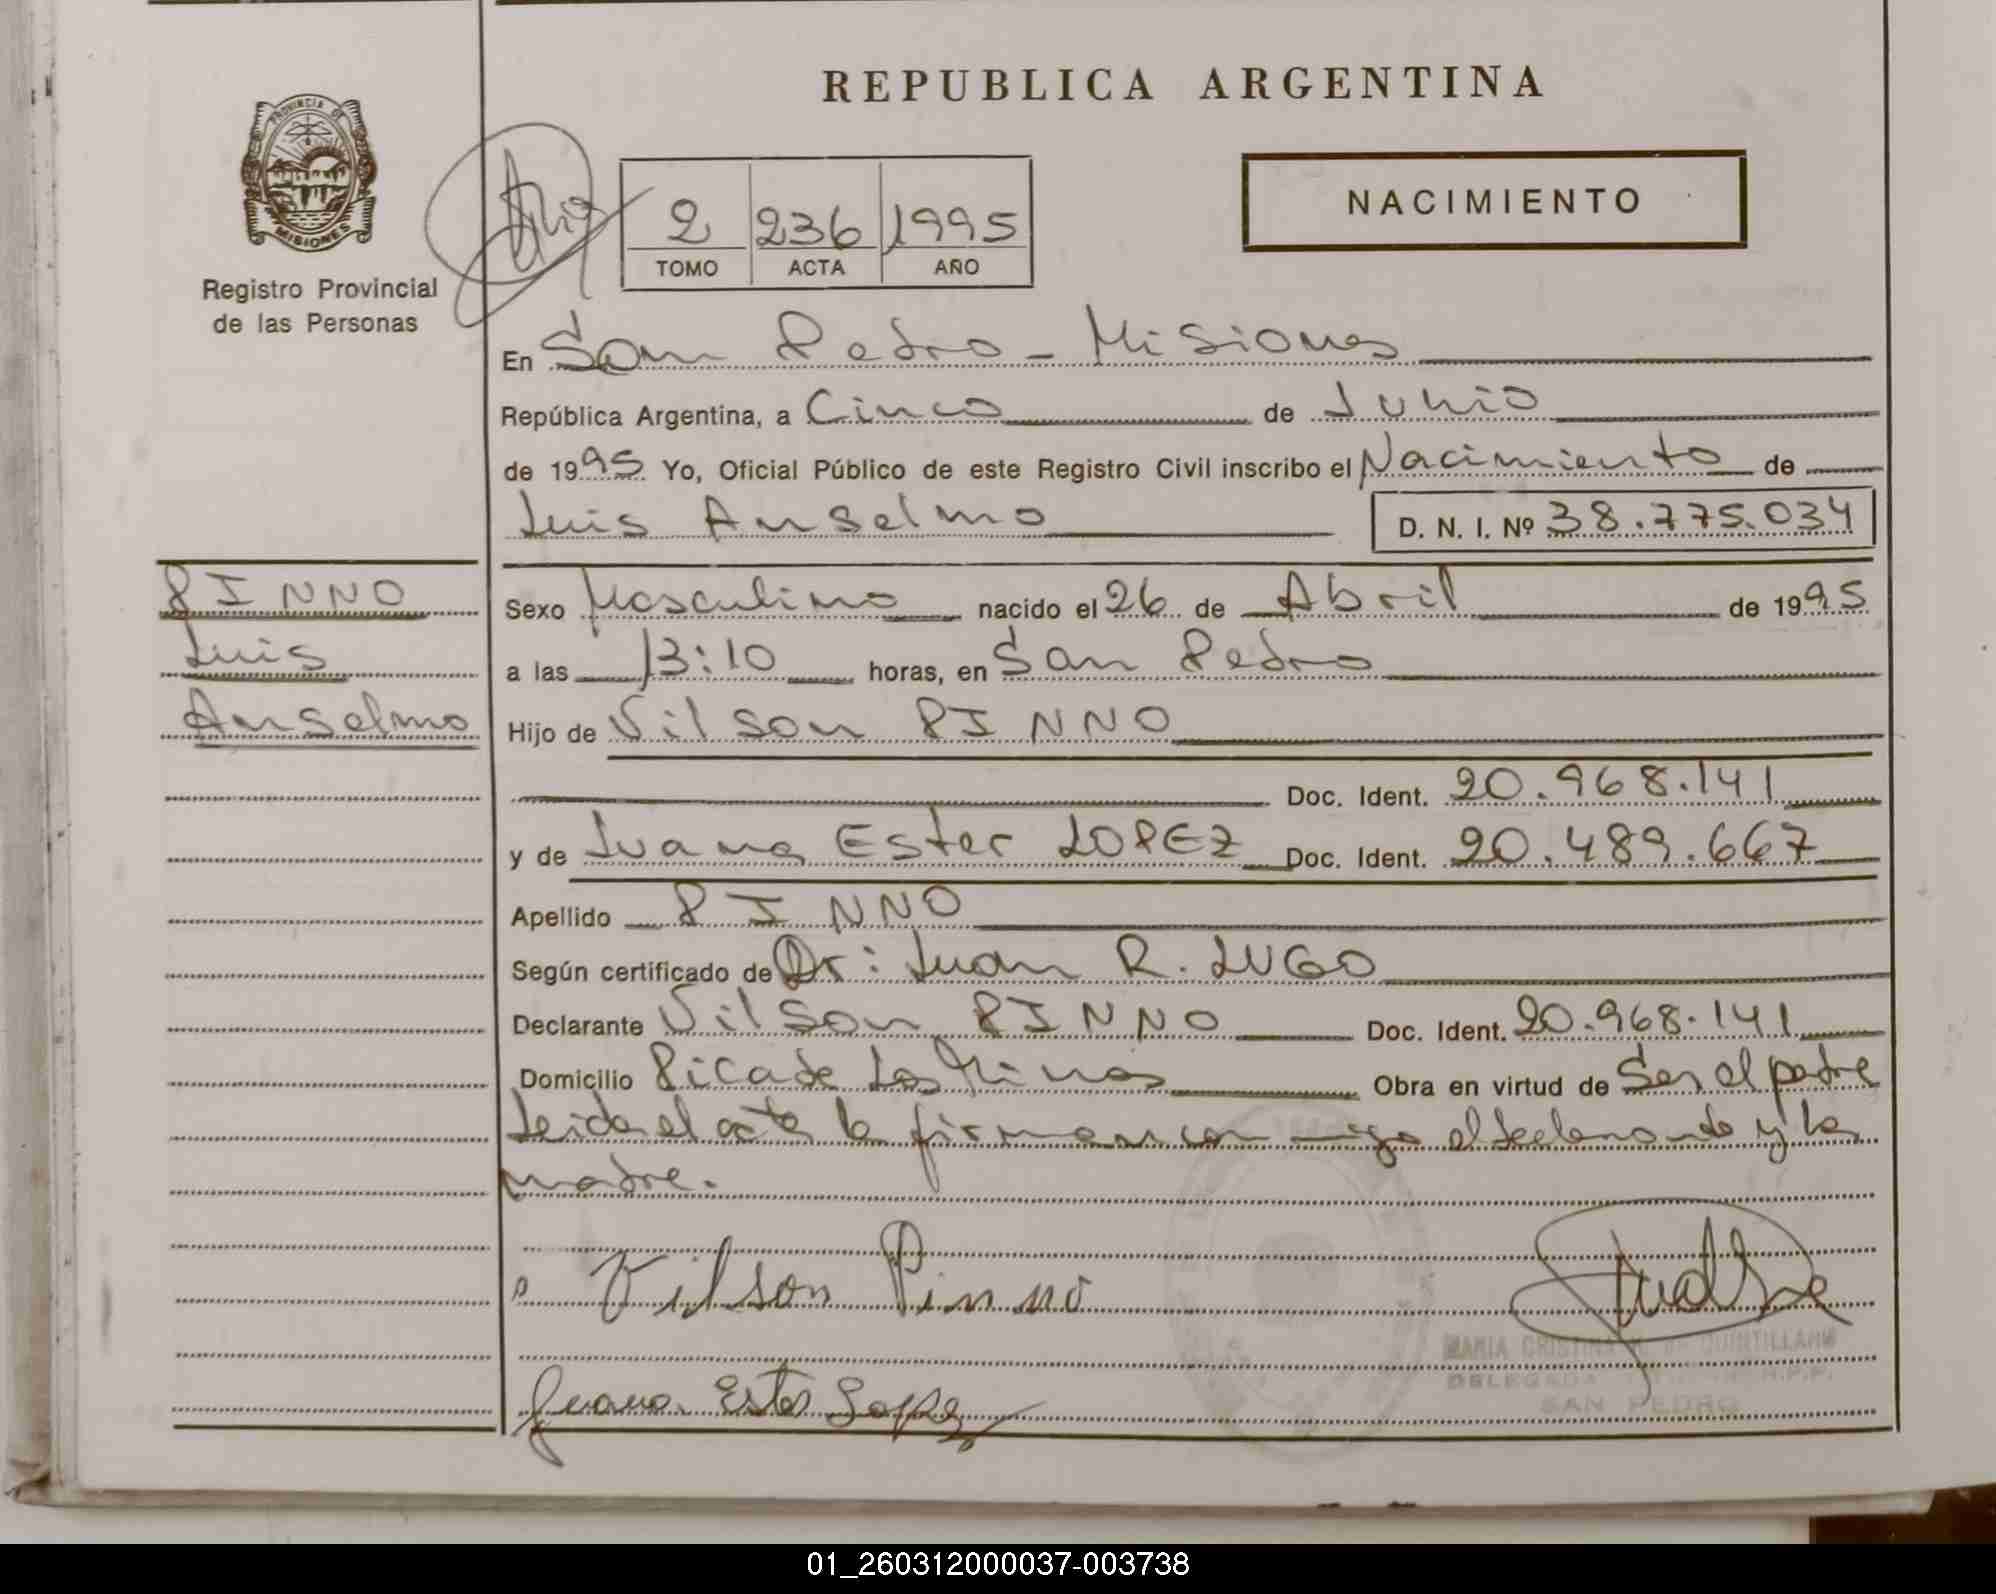 REPUBLICA ARGENTINA
PROVINCIA DE
MISIONES
Registro Provincial
de las Personas
2 236 1995
TOMO ACTA AÑO
NACIMIENTO
En San Pedro - Misiones
República Argentina, a Cinco de Junio
de 1995 Yo, Oficial Público de este Registro Civil inscribo el Nacimiento de
Luis Anselmo D. N. I. Nº 38.775.034
PINNO
Luis
Anselmo
Sexo Masculino nacido el 26 de Abril de 1995
a las 13:10 horas, en San Pedro
Hijo de Vilson PINNO
Doc. Ident. 20.968.141
y de Juana Ester LOPEZ Doc. Ident. 20.489.667
Apellido PINNO
Según certificado de Dr: Juan R. LUGO
Declarante Vilson PINNO Doc. Ident. 20.968.141
Domicilio Picada Las Minas Obra en virtud de Ser el padre
Leida el acta la firman con migo el declarante y la
madre.
Vilson Pinno
MARIA CRISTINA DE QUINTILLAN
DELEGADA R.P.P.
SAN PEDRO
Juana Ester Lopez
01_260312000037-003738